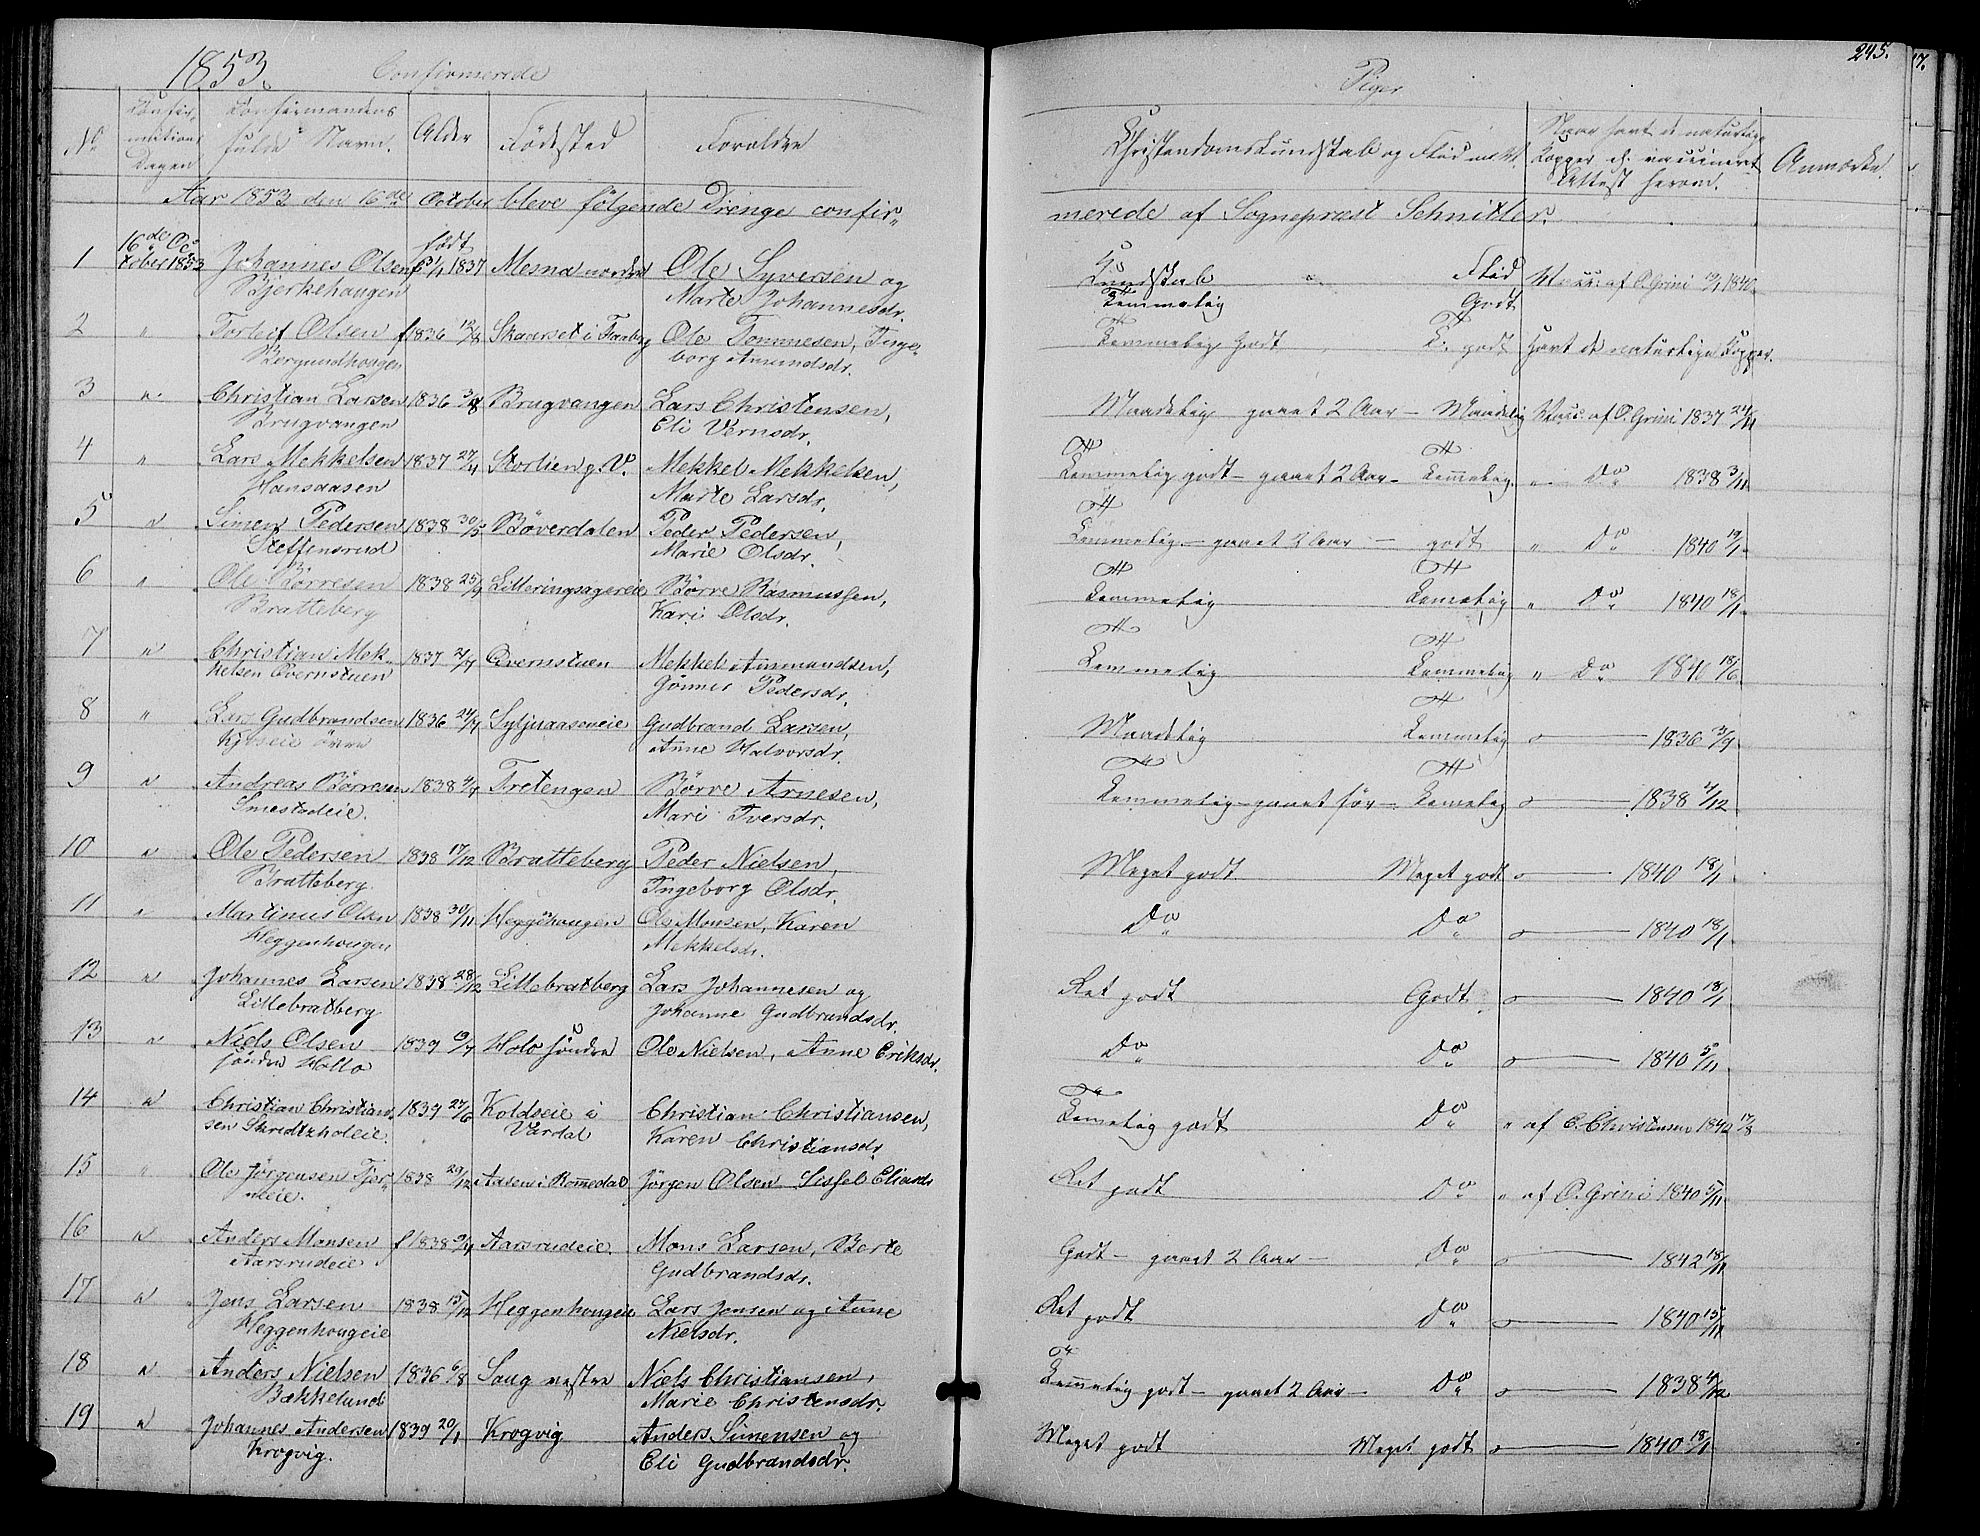 1853. Confirmerede
Piger
245.
No Confirmations Dagen Confirmandens fulde Navn. Alder Födested Forældre Christendomskundskab og Flid Naar havt de naturlige Kopper el. vaccineret Attest herom. Anmærkn.
Aar 1853 den 16de October bleve fölgende Drenge confirmerede af Sognepræst Schnitler.
1 16de October 1853 Johannes Olsen Bjerkehaugen født 1837 Mesna nordre Ole Syversen og Marte Johannesdr. Kundskab Temmelig Flid Godt Vacc. af O. Grini 1840.
2 " Torleif Olsen f 1836 12/8 Skaarset i Faaberg Ole Tommesen, Ingeborg Amundsdr. Temmelig Godt T. godt Havt de naturlige Kopper.
3 " Christian Larsen Brugvangen 1836 Brugvangen Lars Christensen, Eli Vernsdr. Maadelig gaaet 2 Aar – Maadelig Vacc. af O. Grini 1837 24/11
4 " Lars Mekkelsen Hansaasen 1837 27/4 Stortien g. V. Mekkel Mekkelsen, Marte Larsdr. Temmelig godt – gaaet 2 Aar – Temmelig " Do 1838 3/11
5 " Simen Pedersen Steffensrud 1838 30/5 Böverdalen Peder Pedersen, Marie Olsdr. Temmelig – gaaet 2 Aar – godt " Do 1840 19/1
6 " Ole Börresen Bratteberg 1838 25/9 Lilleringsagereie Börre Rasmussen, Kari Olsdr. Temmelig Temelig " Do 1840 18/1
7 " Christian Mekkelsen Qvernstuen 1837 2/7 Qvernstuen Mekkel Ammundsen, Gönner Pedersdr. Temmelig Temmelig " Do 1840 18/6
8 " Lars Gudbrandsen 1836 24/7 Syljuaaseneie Gudbrand Larsen, Anne Halvorsdr. Maadelig Temmelig " 1836 3/9
9 " Andreas Börresen Smestadeie. 1838 4/7 Tretengen Börre Arnesen, Mari Iversdr. Temmelig – gaaet før – Temelig " 1838 4/12
10 " Ole Pedersen Bratteberg. 1838 17/12 Bratteberg Peder Nielsen, Ingeborg Olsdr. Meget godt Meget godt " 1840 18/1
11 " Martinus Olsen Heggenhougen 1838 30/11 Heggehougen Ole Monsen, Karen Mekkelsdr. Do Do " 1840 18/1
12 " Johannes Larsen Lillebratberg 1838 28/12 Lillebratberg Lars Johannesen og Johanne Gudbrandsdr. Ret godt Godt " 1840 18/1
13 " Niels Olsen söndre Hollo 1839 Holo söndre Ole Nielsen, Anne Eriksdr. Do Do " 1840 5/11
14 " Christian Christiansen 1839 27/6 Koldseie i Vardal Christian Christiansen, Karen Christiansdr. Temelig godt Do " af C. Christensen 1840 17/8
15 " Ole Jörgensen 1838 29/12 Aasen i Romedal Jörgen Olsen Sissel Eliasdr Ret godt Do " af O. Grini 1840 5/11
16 " Anders Monsen Aarsrudeie f 1838 9/4 Aarsrudeie. Mons Larsen, Berte Gudbrandsdr. Godt – gaaet 2 Aar – Do " 1842 18/11
17 " Jens Larsen Heggenhougeie 1838 15/12 Heggenhougeie Lars Jensen og Anne Nielsdr. Ret godt Do " 1840 15/11
18 " Anders Nielsen Bækkelund 1836 6/8 Saug nestre Niels Christiansen, Marie Christensdr. Temmelig godt – gaaet 2 Aar – Do " 1838 4/12
19 " Johannes Andersen Krogvig. 1839 20/1 Krogvig Anders Simensen og Eli Gudbrandsdr. Meget godt Meget godt " 1840 18/1